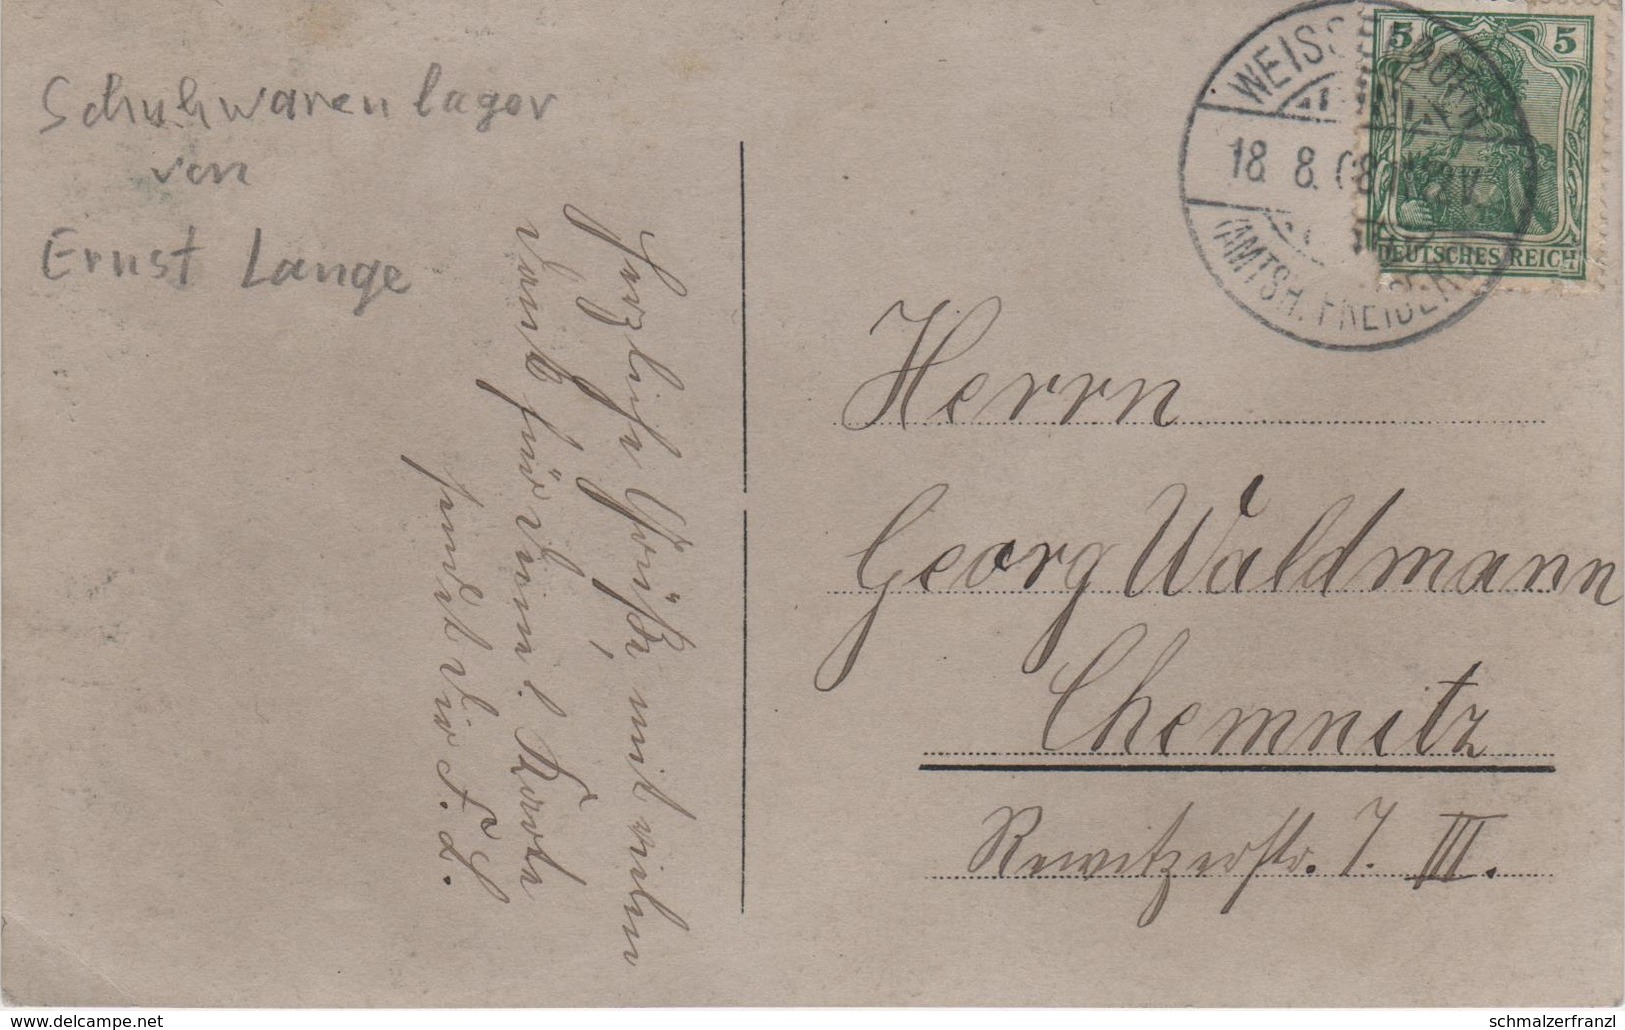 Schuhwarenlager
von
Ernst Lange
Herzliche Grüße, mit vielen
Dank für Deine l. Karte
sendet Dir F. L.
5 5
DEUTSCHES REICH
WEISS DORF
18. 8. 08
(AMTSH. FREIBERG)
Herrn
Georg Waldmann
Chemnitz
Rewitzerstr. 7. III.
www.delcampe.net
schmalzerfranzl